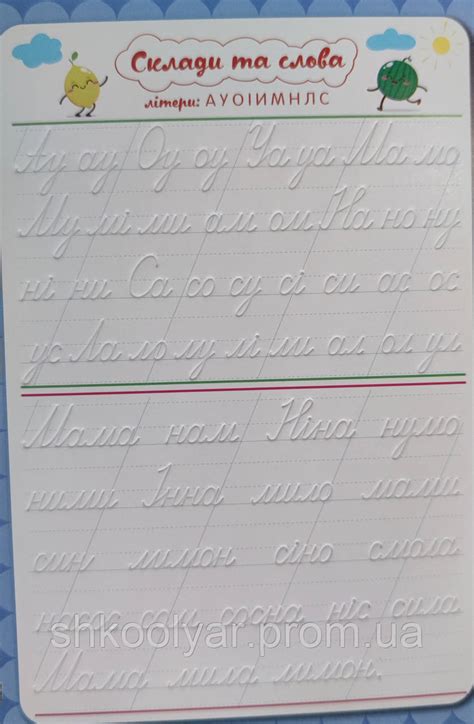 Склади та слова
літери: АУОІИМНЛС
Ау ау Оу оу Уа уа Ма мо
Му мі ми ам ом На но ну
ні ни Са со су сі си ас ос
ус Ла ло лу лі ли ал ол ул
Мама нам Ніна нумо
ними Інна мило мами
син лимон сіно смола
насос сом сосна ніс сила
shkoolyar.prom.ua
Мама мила лимон.